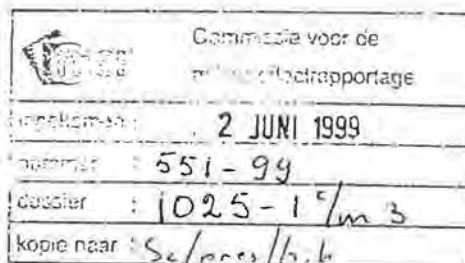 Commissie voor de
milieueffectrapportage
ingekomen : 2 JUNI 1999
nummer : 551-99
dossier : 1025-1
kopie naar : Sc/pres/bib